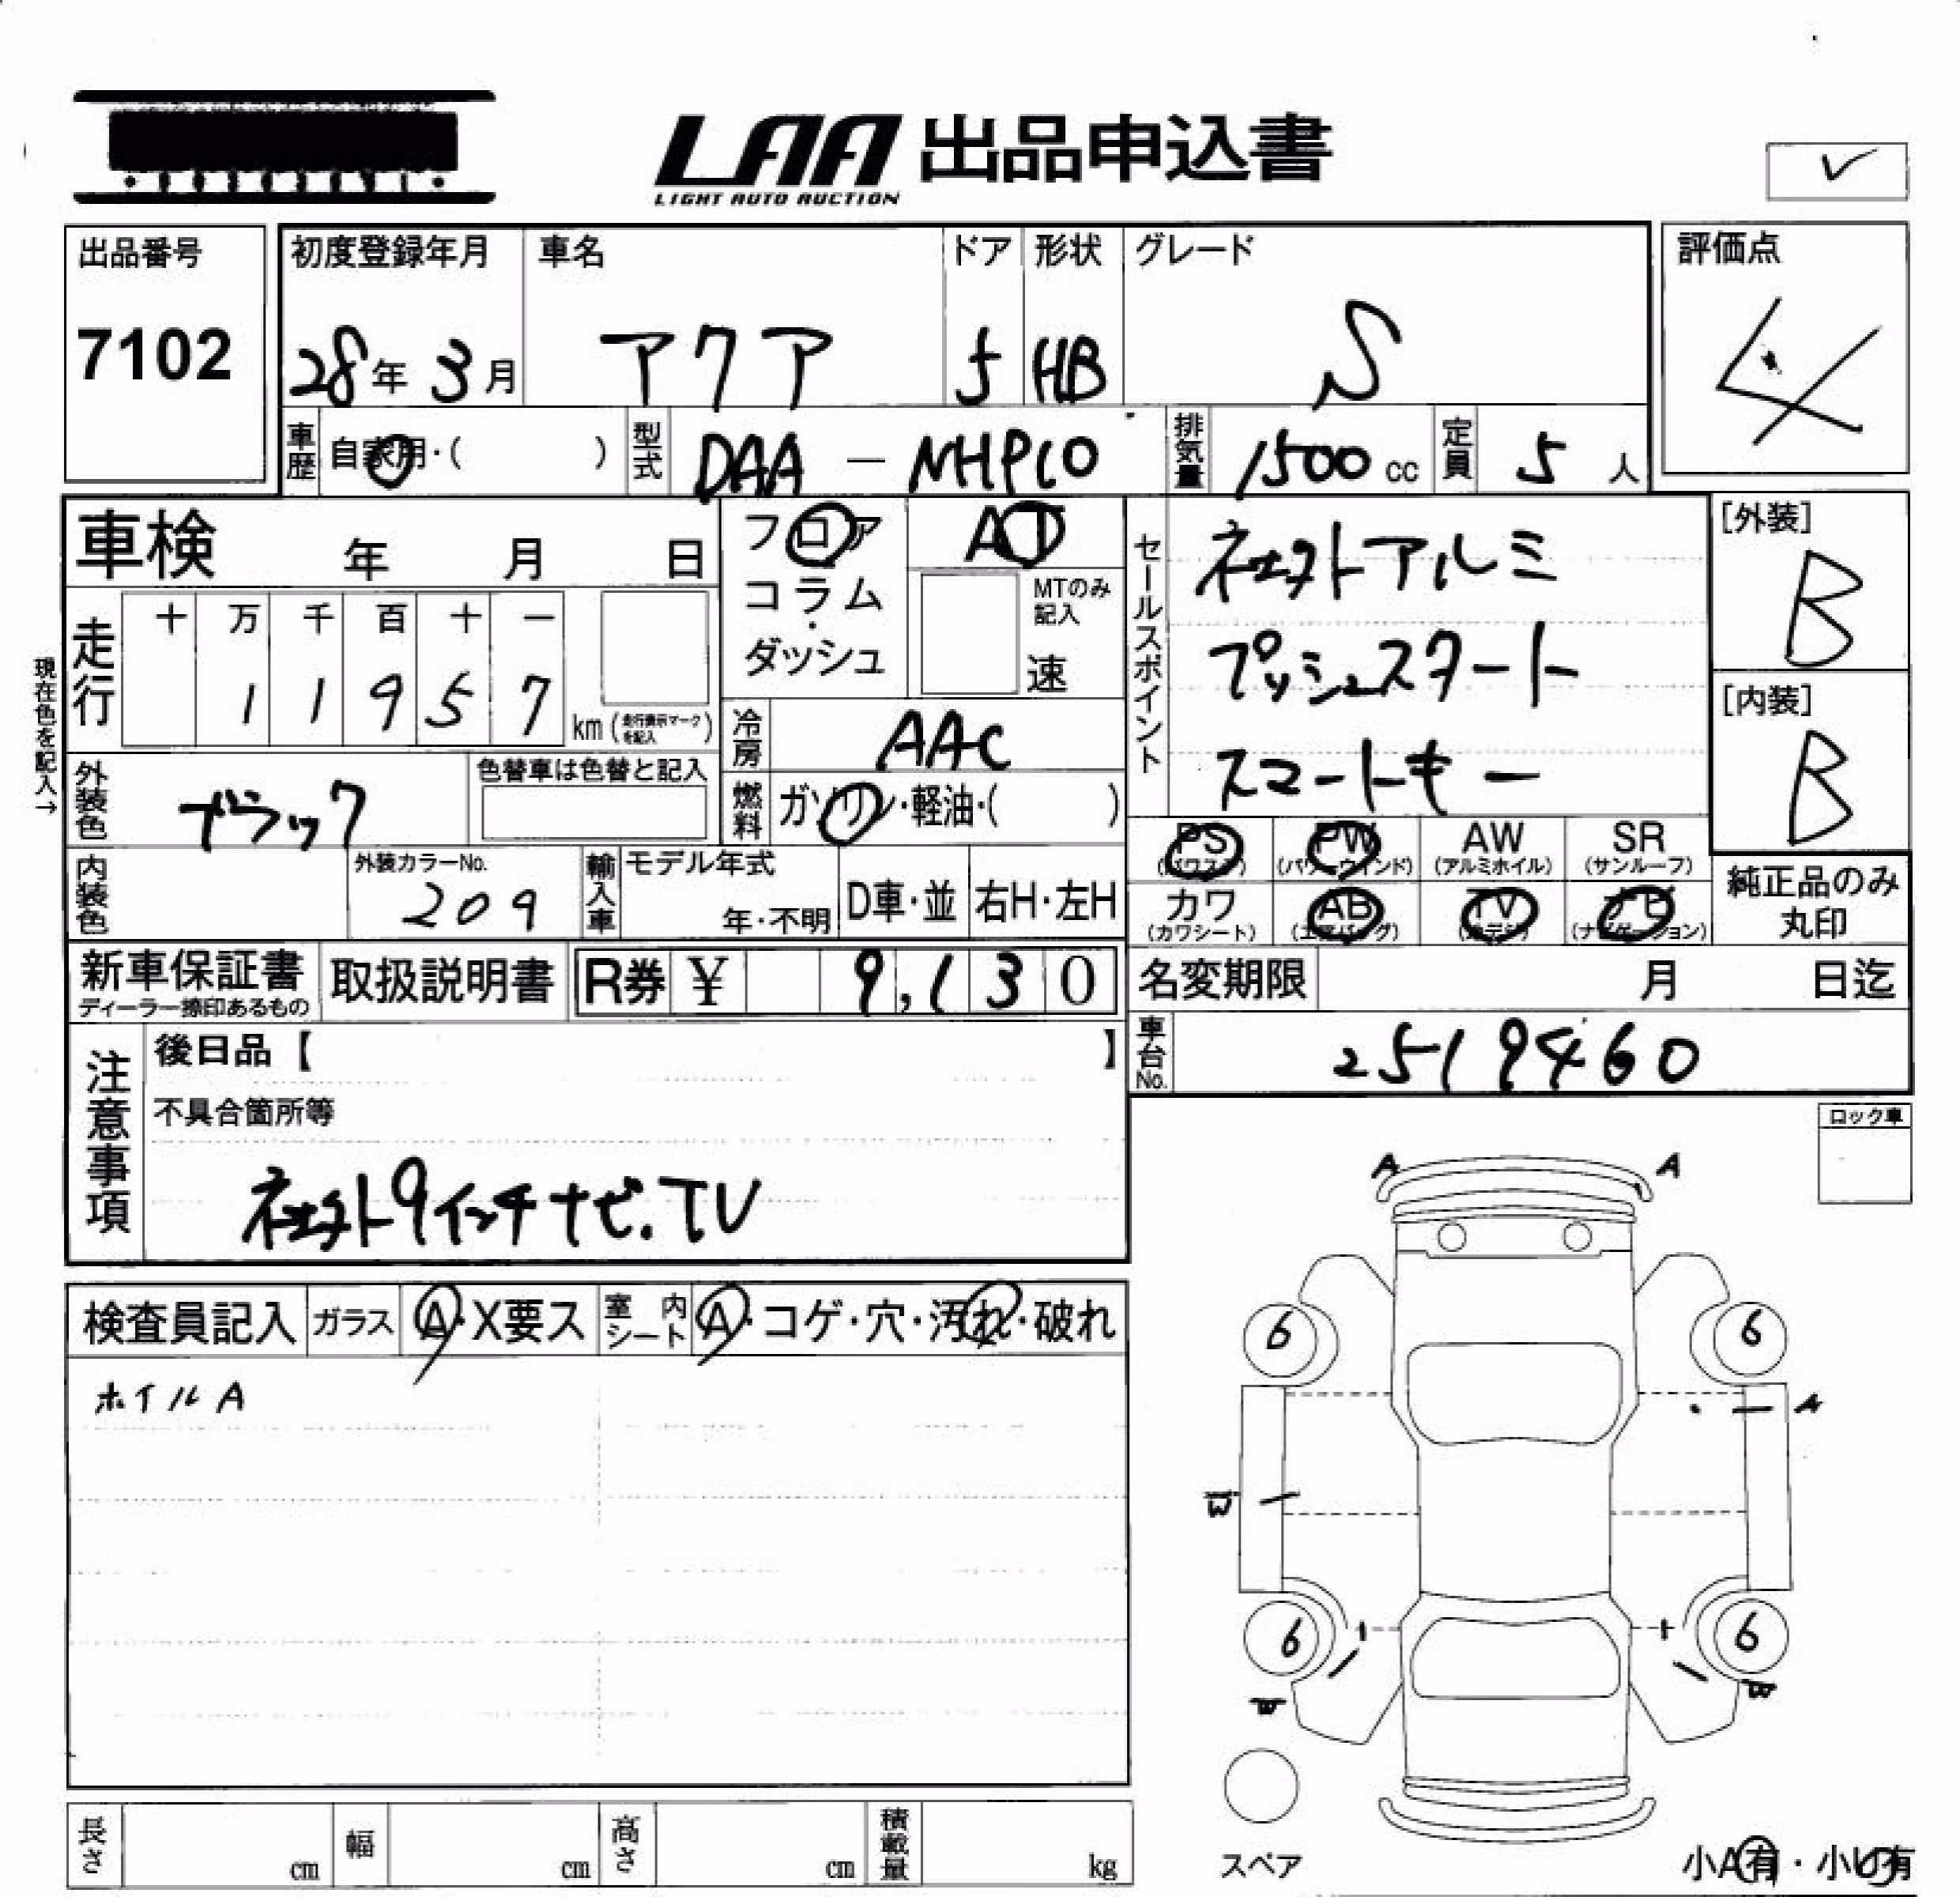 LAA 出品申込書
LIGHT AUTO AUCTION
出品番号
7102
初度登録年月
28年 3月
車名
アクア
ドア
5
形状
HB
グレード
S
評価点
4
車歴 自家用・( )
型式 DAA - NHP10
排気量 1500 cc
定員 5 人
車検 年 月 日
フロア
コラム
・
ダッシュ
AT
MTのみ
記入
速
セールスポイント
ネクストアルミ
プッシュスタート
スマートキー
[外装]
B
[内装]
B
現在色を記入→
走行
十 万 千 百 十 一
1 1 9 5 7 km (走行表示マークを記入)
冷房 AAC
外装色 ブラック
色替車は色替と記入
燃料 ガソリン・軽油・( )
PS (パワステ)
PW (パワーウィンド)
AW (アルミホイル)
SR (サンルーフ)
カワ (カワシート)
AB (エアバッグ)
TV (地デジ)
ナビ (ナビゲーション)
純正品のみ
丸印
内装色
外装カラーNo.
209
輸入車
モデル年式
年・不明
D車・並
右H・左H
新車保証書
ディーラー捺印あるもの
取扱説明書
R券 ¥ 9,130
名変期限 月 日迄
車台No. 2519460
注意事項
後日品【 】
不具合箇所等
ネクスト9インチナビ.TV
ロック車
検査員記入
ガラス A・X要ス
室内シート A・コゲ・穴・汚れ・破れ
ホイルA
A A
6 6
A
W
6 6
W W
スペア
長さ cm
幅 cm
高さ cm
積載量 kg
小A有・小U有